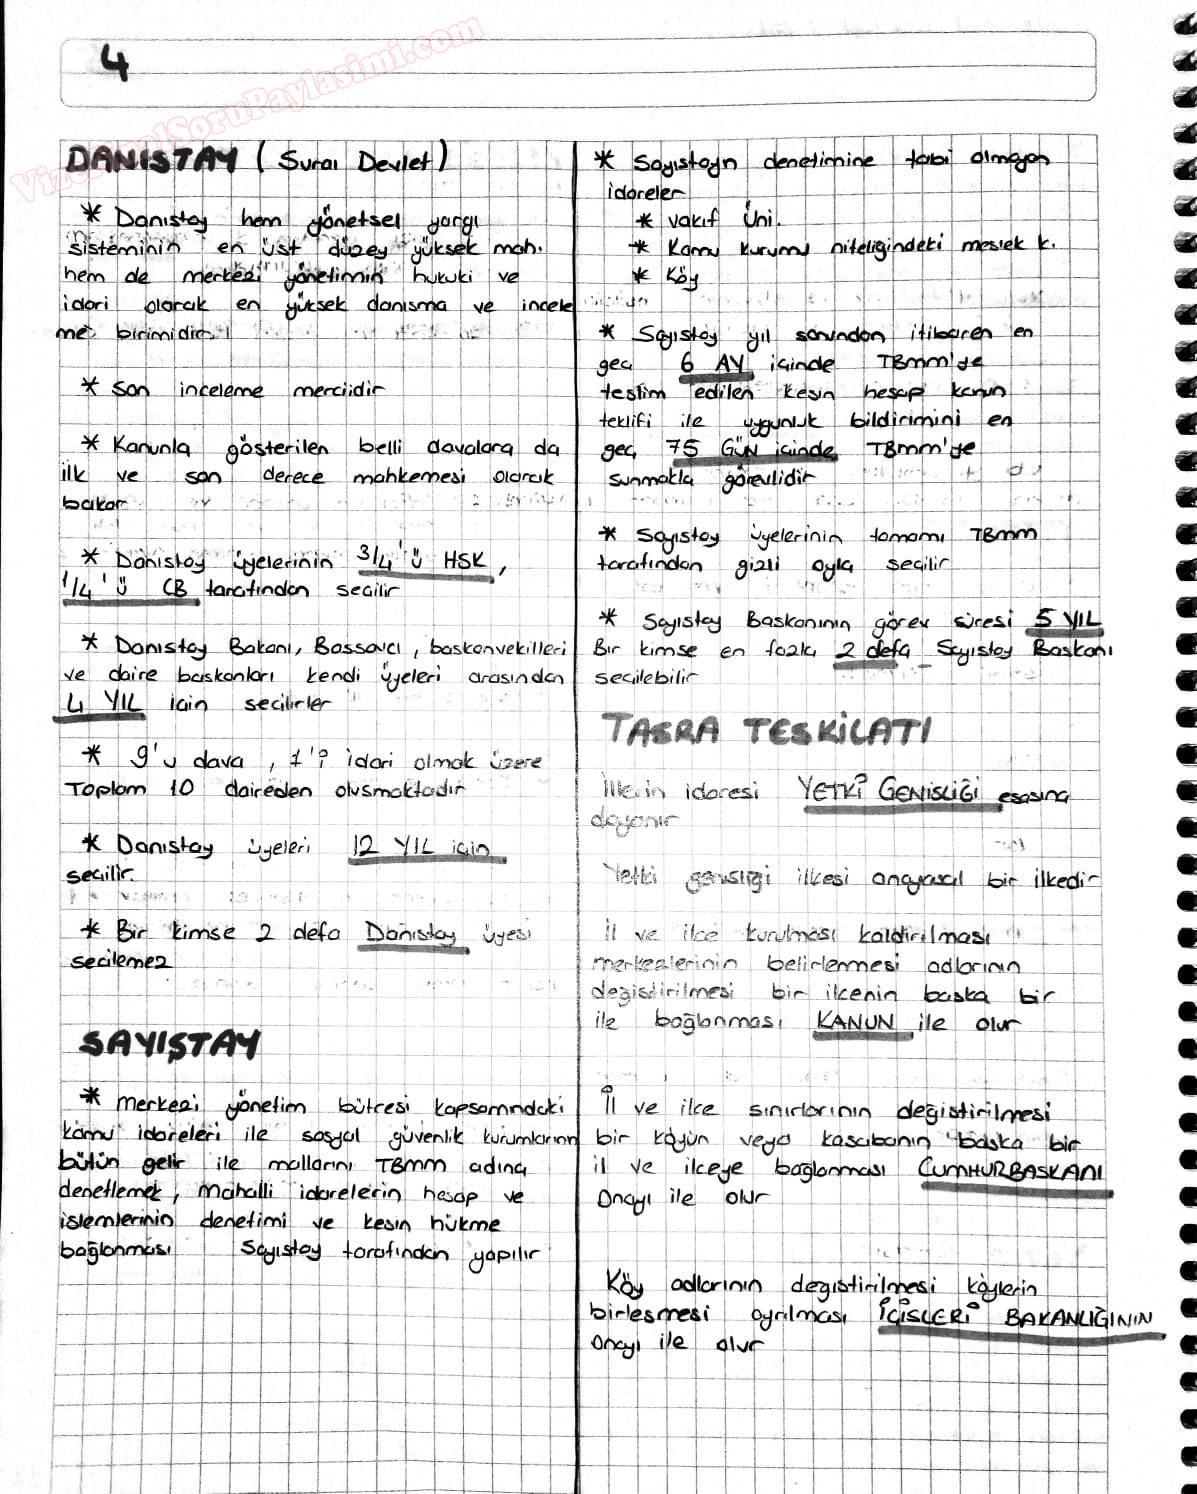 4
VizeFinalSoruPaylasimi.com
DANISTAY ( Suraı Devlet )
* Danıstay hem yönetsel yargı
sisteminin en üst düzey yüksek mah.
hem de merkezi yönetimin hukuki ve
idari olarak en yüksek danısma ve incele
me birimidir.
* Son inceleme merciidir
* Kanunla gösterilen belli davalara da
ilk ve son derece mahkemesi olarak
bakar
* Danıstay üyelerinin 3/4'ü HSK,
1/4'ü CB tarafından secilir
* Danıstay Bakanı, Bassavcı, baskanvekilleri
ve daire baskanları kendi üyeleri arasından
4 YIL için secilirler
* 9'u dava, 1'i idari olmak üzere
Toplam 10 daireden olusmaktadır
* Danıstay üyeleri 12 YIL için
secilir.
* Bir kimse 2 defa Danıstay üyesi
secilemez
SAYIŞTAY
* merkezi yönetim bütcesi kapsamındaki
kamu idareleri ile sosyal güvenlik kurumlarının
bütün gelir ile mallarını TBMM adına
denetlemek, mahalli idarelerin hesap ve
islemlerinin denetimi ve kesin hükme
bağlanması Sayıstay tarafından yapılır
* Sayıstayın denetimine tabi olmayan
idareler
* vakıf Üni.
* Kamu kurumu niteliğindeki meslek k.
* Köy
* Sayıstay yıl sonundan itibaren en
geç 6 AY içinde TBMM'ye
teslim edilen kesin hesap kanun
teklifi ile uygunluk bildirimini en
geç 75 GÜN içinde TBMM'ye
sunmakla görevlidir
* Sayıstay üyelerinin tamamı TBMM
tarafından gizli oyla secilir
* Sayıstay Baskanının görev süresi 5 YIL
Bir kimse en fazla 2 defa Sayıstay Baskanı
secilebilir
TASRA TESKİLATI
İllerin idaresi YETKİ GENİSLİĞİ esasına
dayanır
Yetki genisliği ilkesi anayasal bir ilkedir
İl ve ilce kurulması kaldırılması
merkezlerinin belirlenmesi adlarının
değistirilmesi bir ilcenin baska bir
ile bağlanması KANUN ile olur
İl ve ilce sınırlarının değistirilmesi
bir köyün veya kasabanın baska bir
il ve ilceye bağlanması CUMHURBASKANI
onayı ile olur
Köy adlarının değistirilmesi köylerin
birlesmesi ayrılması İÇİSLERİ BAKANLIĞININ
onayı ile olur